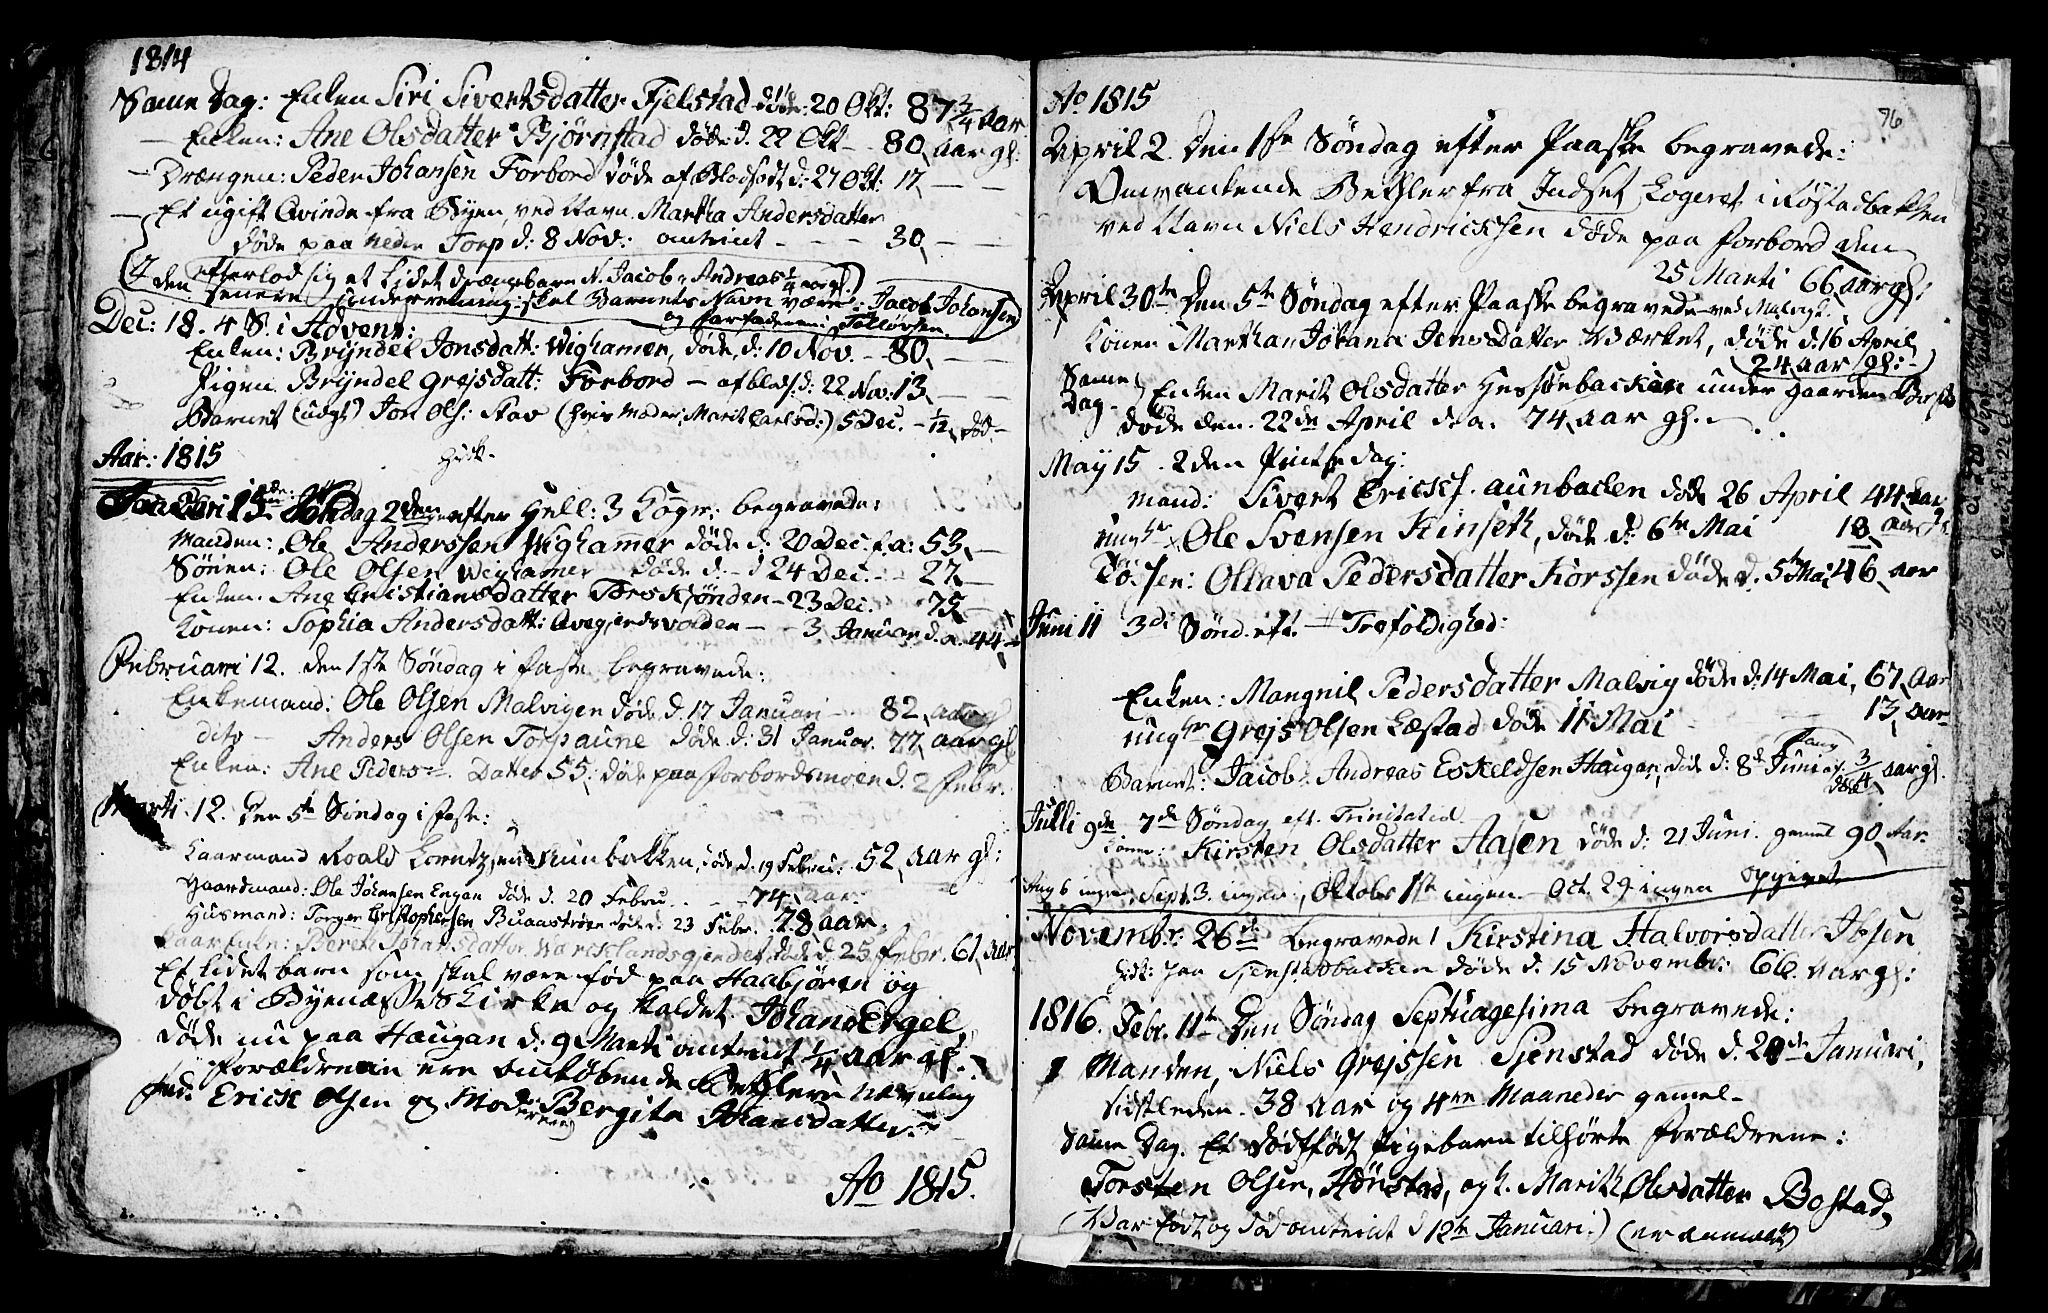 1814
Same Dag: Enken Siri Sivertsdatter Fjelstad døde: 20 Okt: 87 3/4 aar
— Enken: Ane Olsdatter Bjørnstad døde d. 22 Okt — 80 aar gl:
— Drængen: Peder Johansen Forbord døde af Blodsodt d: 27 Okt: 17 — —
— Et ugift Qvinde fra Byen, ved Navn Martha Andersdatter
døde paa neder Torp d: 8 Nov: omtrent — — — 30 — —
efterlod sig et lidet drængebarn N. Jacob Andreas 1/4 aargl.
den senere underretning skal Barnets Navn være: Jacob Johansen
og farfaderen: Tolløvsen
Dec: 18. 4 S. i Advent:
Enken: Bryndel Jonsdatt: Wighamer, døde, d: 10 Nov. — 80 — —
Pigen Bryndel Grejsdatt: Forbord — af blods: d: 22 Nov: 13 — —
Barnet (udgt) Jon Ols: Stav (hvis Moder: Marit Carlsd:) 5 Dec. — 1/12 død —
Aar: 1815
Januari 15de Søndag 2den efter Hell: 3 Kogr: begravede:
Manden: Ole Anderssen Wighamer døde d: 20 Dec: f.a: 53 —
Sønen: Ole Olsen Wighamer døde d: — d 24 Dec. — 27 —
Enken: Ane Cristiansdatter Torskjønden — 23 Dec. 75 —
Konen: Sophia Andersdatt: Qvegjerdsvolden — 3 Januar d.a. 44 —
Februari 12. den 1ste Søndag i faste begravede:
Enkemand: Ole Olsen Malvigen døde d. 17 Januari — 82 aargl
dito — Anders Olsen Torpaune døde d: 31 Januar. 77 aargl
Enken: Ane Peders Datter 55: døde paa Forbordsmoen d. 2 Febr.
Marti 12. den 5te Søndag i faste:
Kaarmand Roald Lorntzsen Aunbakken, døde d. 19 Februi: 52 aar gl:
Gaardmand: Ole Johansen Engan døde d. 20 Febru. — — 74 aar.
Husmand: Torger Cristophersen Buaastrøen døde d. 23 Febr. 78 aar.
Kaar Enke: Bereth Johansdatter døde d. 25 Febr. 61 aar
Et lidet barn som skal være fød paa Haabjøren og
døbt i Byenæssets Kirke og kaldet Johan Engel,
døde nu paa Haugan d: 9 Marti omtrent 1/4 aar gl. —
Forældrene ere omløbende Betlere nævnlig
Fad. Erick Olsen og Moderen Bergita Johansdatter.
Ao 1815.
Ao 1815
96
April 2. Den 1ste Søndag efter Paaske begravede:
Omvankende Betler fra Indset Logeret i Røstadbakken
ved Navn Niels Hendricksen døde paa Forbord den
25 Marti 66 aargl:
April 30te Den 5te Søndag efter Paaske begravede ved Malvigk.
Konen Martha Johana Jensdatter Værket, døde d. 16 April
24 aar gl: —
Same Dag — Enken Marit Olsdatter Hessenbacken under Gaarden
døde den. 22de April d.a. 74 aar gl. —
May 15. 2den Pintsedag:
Mand: Sivert Ericks. aunbacken døde 26 April 44 aar
ungkr Ole Svensen Kinseth, døde d: 6te Mai 18 aar
Tøsen: Ollava Pedersdatter Korssen døde d. 5te Mai 46 aar
Juni 11 3di Sønd. eft. Trefoldighed:
Enken: Mangnil Pedersdatter Malvig døde d: 14 Mai, 67 aar
ungkr Grejs Olsen Læstad døde 11 Mai — 13 aar
Barnet: Jacob Andreas Eskeldsen Haugan, døde d: 8de Juni 3/4 aargl.
Julli 9de 7de Søndag eft. Trinitatis.
Konen: Kirsten Olsdatter Aasen døde d: 21 Juni. gamel 90 Aar.
Aug 6 ingen, Sept 3. ingen, Oktobr 1ste ingen — Oct. 29 ingen
Novembr: 26de begravede 1 Kirstina Halvorsdatter Ibsen
paa Sjenstadbacken døde d. 15 Novembr: 66. aargl:
1816. Febr. 11te Den Søndag Septuagesima begravede:
1 Manden, Niels Grejssen Sjenstad døde d. 20de Januari,
sidstleden. 38 aar og 4re Maaneder gamel —
Same Dag. Et dødfødt Pigebarn tilhørte Forældrene:
Torsten Olsen, Hønstad, og k. Marith Olsdatter Bostad,
(Var født og død omtrent d 12te Januari.)